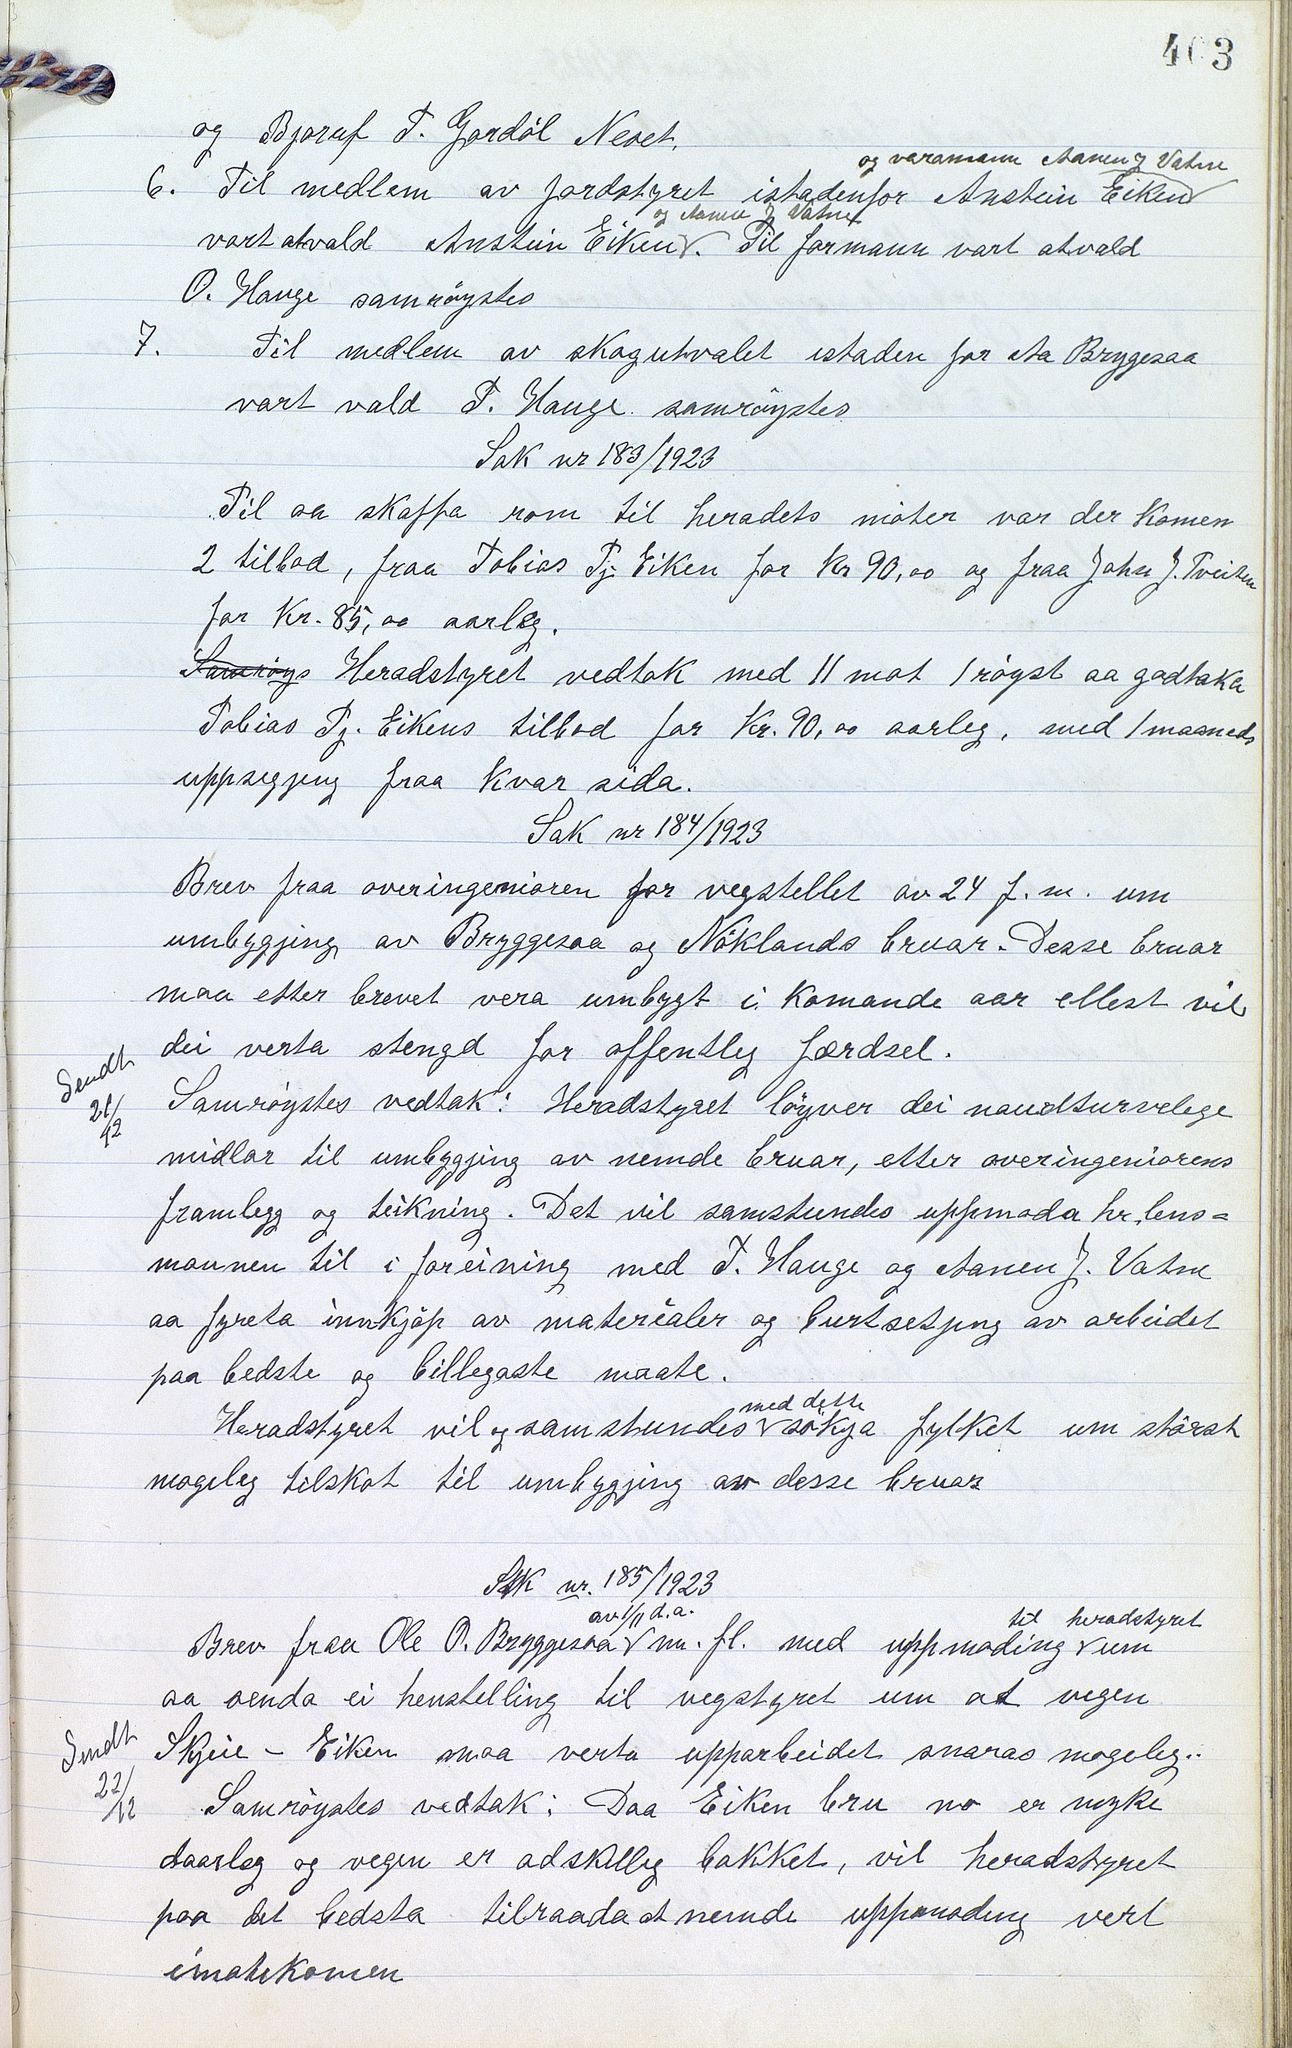 403
og Bjoruf T. Gordôl Neset.
og varamann Aanen J Vatne
6. Til medlem av jordstyret istadenfor Anstein Eiken
og Aanen J Vatne
vart atvald Anstein Eiken. Til formann vart atvald
O. Hauge samrøystes
7. Til medlem av skogutvalet istaden for Aa Bryggesaa
vart vald T. Hauge samrøystes
Sak nr 183/1923
Til aa skaffa rom til heradets møter var der komen
2 tilbod, fraa Tobias Tj. Eiken for kr 90,00 og fraa John J. Tveiten
for Kr. 85,00 aarleg.
Samrøys Heradstyret vedtok med 11 mot 1 røyst aa godtaka
Tobias Tj. Eikens tilbod for Kr. 90,00 aarleg, med 1 maaneds
uppsegjing fraa kvar sida.
Sak nr 184/1923
Brev fraa overingeniøren for vegstellet av 24 f. m. um
umbygjing av Bryggesaa og Nøklands bruar. Desse bruar
maa etter brevet vera umbygt i komande aar ellest vil
dei verta stengd for offentleg færdsel.
Sendt 21/12
Samrøystes vedtak: Heradstyret løyver dei naudturvelege
midlar til umbygging av nemde bruar, etter overingeniørens
framlegg og teikning. Det vil samstundes uppmoda hr. lens=
mannen til i foreining med T. Hauge og Aanen J. Vatne
aa fyreta innkjøp av materialer og burtsetjing av arbeidet
paa bedste og billegaste maate.
med dette
Heradstyret vil og samstundes søkja fylket um størst
mogeleg tilskot til umbygging av desse bruar
Sak nr. 185/1923
av 1/11 d.a. til heradstyret
Brev fraa Ole O. Bryggesaa m. fl. med uppmoding um
aa senda ei henstelling til vegstyret um at vegen
Sendt 22/12
Skjeie - Eiken maa verta upparbeidet snaras mogeleg..
Samrøystes vedtak: Daa Eiken bru no er myke
daarleg og vegen er adskilleg bakket, vil heradstyret
paa det bedsta tilraada at nemde uppmoding vert
imøtekomen